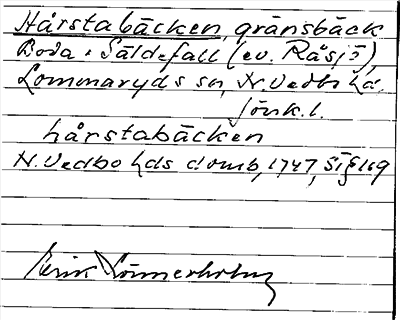 Hårstabäcken, gränsbäck
Boda - Säldefall (ev. Råsjö),
Lommaryds sn, N. Vedbo hd.
Jönk. l.
hårstabäcken
N. Vedbo hds domb, 1747, § 169
Erik Lönnerholm